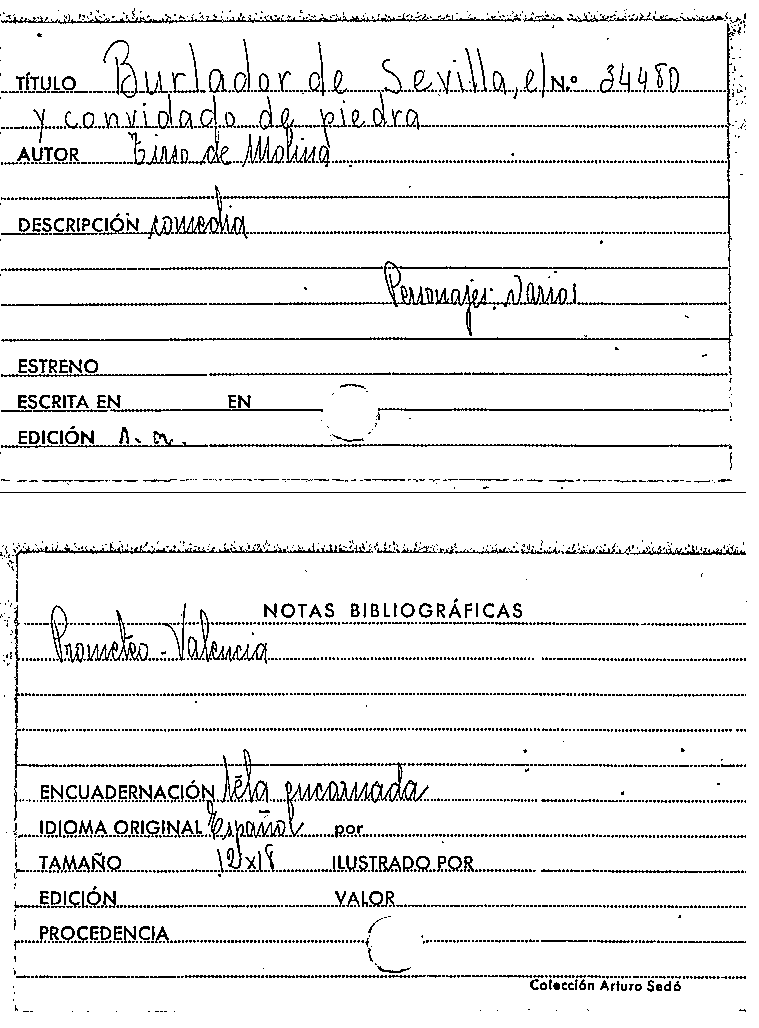 TÍTULO Burlador de Sevilla, el N.º 34480
y convidado de piedra
AUTOR Tirso de Molina
DESCRIPCIÓN comedia
Personajes: Varios
ESTRENO
ESCRITA EN EN
EDICIÓN
NOTAS BIBLIOGRÁFICAS
Prometeo - Valencia
ENCUADERNACIÓN tela encarnada
IDIOMA ORIGINAL Español por
TAMAÑO 12x18 ILUSTRADO POR
EDICIÓN VALOR
PROCEDENCIA
Colección Arturo Sedó